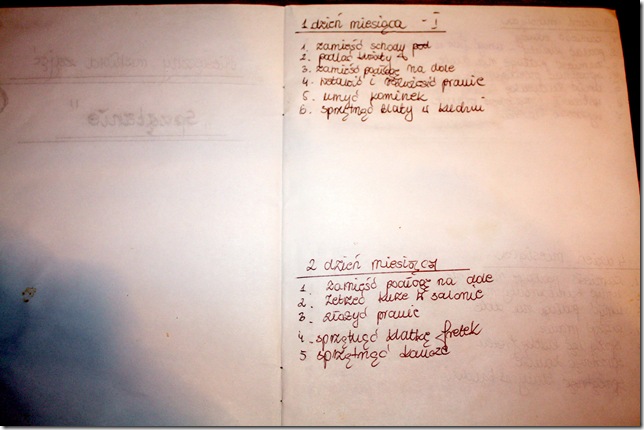 1 dzień miesiąca - I
1. zamieść schody pod
2. podlać kwiaty
3. zamieść podłogę na dole
4. wstawić i rozwiesić pranie
5. umyć kominek
6. sprzątnąć blaty w kuchni
2 dzień miesiąca
1. zamieść podłogę na dole
2. zetrzeć kurze w salonie
3. złożyć pranie
4. sprzątnąć klatkę fretek
5. sprzątnąć
"Sprzątanie"